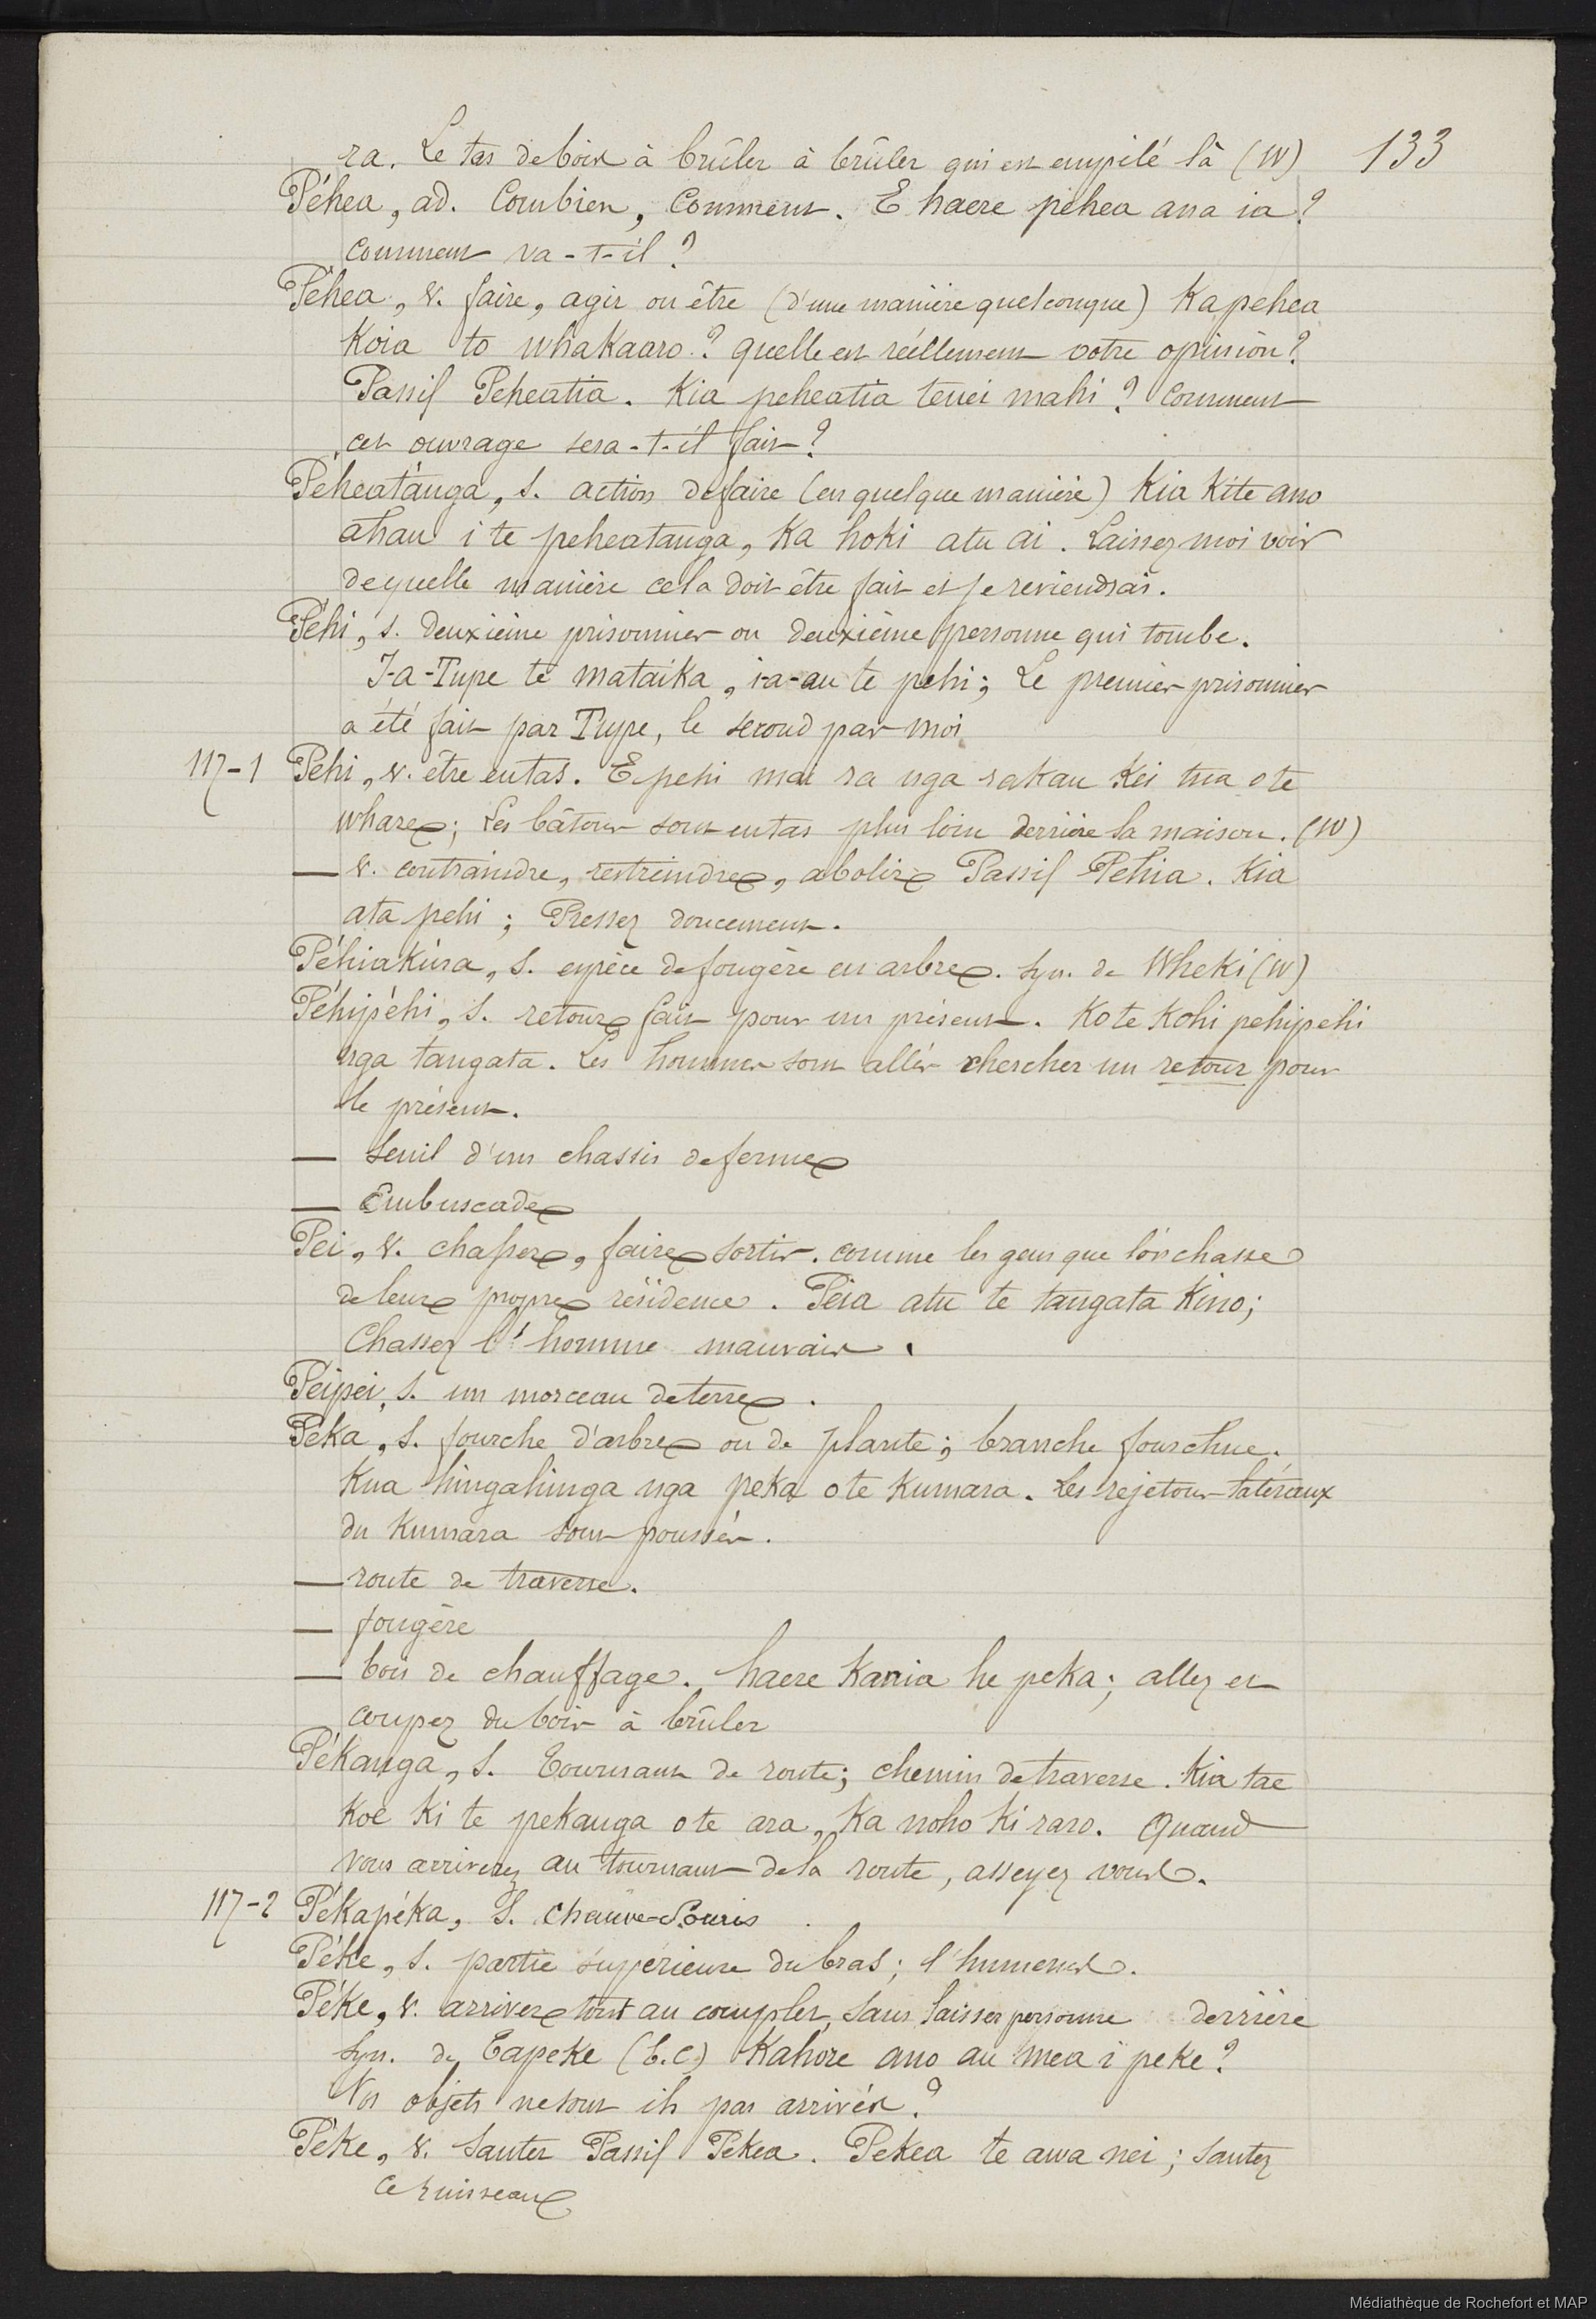 133
ra. Le tas de bois à brûler à brûler qui est empilé là (W)
Péhea, ad. Combien, Comment. E haere pehea ana ia?
Comment va-t-il?
Péhea, v. faire, agir ou être (d'une manière quelconque) Ka pehea
Koia to whakaaro? quelle est réellement votre opinion?
Passif Peheatia. Kia peheatia tenei mahi? Comment
cet ouvrage sera-t-il fait?
Péheatánga, s. action de faire (en quelque manière) Kia Kite ano
ahau i te peheatanga, Ka hoki atu ai. Laissez moi voir
de quelle manière cela doit être fait et je reviendrai.
Péhi, s. deuxième prisonnier ou deuxième personne qui tombe.
I-a-Tupe te mataika, i-a-au te pehi; Le premier prisonnier
a été fait par Tupe, le second par moi
117-1 Pehi, v. être en tas. E pehi mai ra nga rakau Kei tua o te
whare; Les bâtons sont en tas plus loin derrière la maison. (W)
— v. contraindre, restreindre, abolir Passif Pehia. Kia
ata pehi; Pressez doucement.
Péhiakúra, s. espèce de fougère en arbre. Syn. de Wheki (W)
Péhipéhi, s. retour fait pour un présent. Ko te Kohi pehipehi
nga tangata. Les hommes sont allés chercher un retour pour
le présent.
— Seuil d'un chassis de ferme
— Embuscade
Pei, v. chasser, faire sortir. comme les gens que l'on chasse
de leur propre résidence. Peia atu te tangata Kino;
Chassez l'homme mauvais.
Péipei, s. un morceau de terre.
Péka, s. fourche d'arbre ou de plante; branche fourchue.
Kua hingahinga nga peka o te Kumara. Les rejetons latéraux
du Kumara sont poussés.
— route de traverse.
— fougère
— bois de chauffage. haere Kania he peka; allez et
coupez du bois à brûler
Pékanga, s. Tournant de route; chemin de traverse. Kia tae
Koe Ki te pekanga o te ara, Ka noho Ki raro. Quand
vous arriverez au tournant de la route, asseyez vous.
117-2 Pékapéka, S. Chauve-Souris
Péke, s. partie supérieure du bras; l'humerus.
Péke, v. arriver tout au complet, sans laisser personne derrière
Syn. de Tapeke (T.C) Kahore ano au mea i peke?
Vos objets ne sont ils pas arrivés?
Péke, v. Sauter Passif Pekea. Pekea te awa nei; sautez
ce ruisseau
Médiathèque de Rochefort et MAP